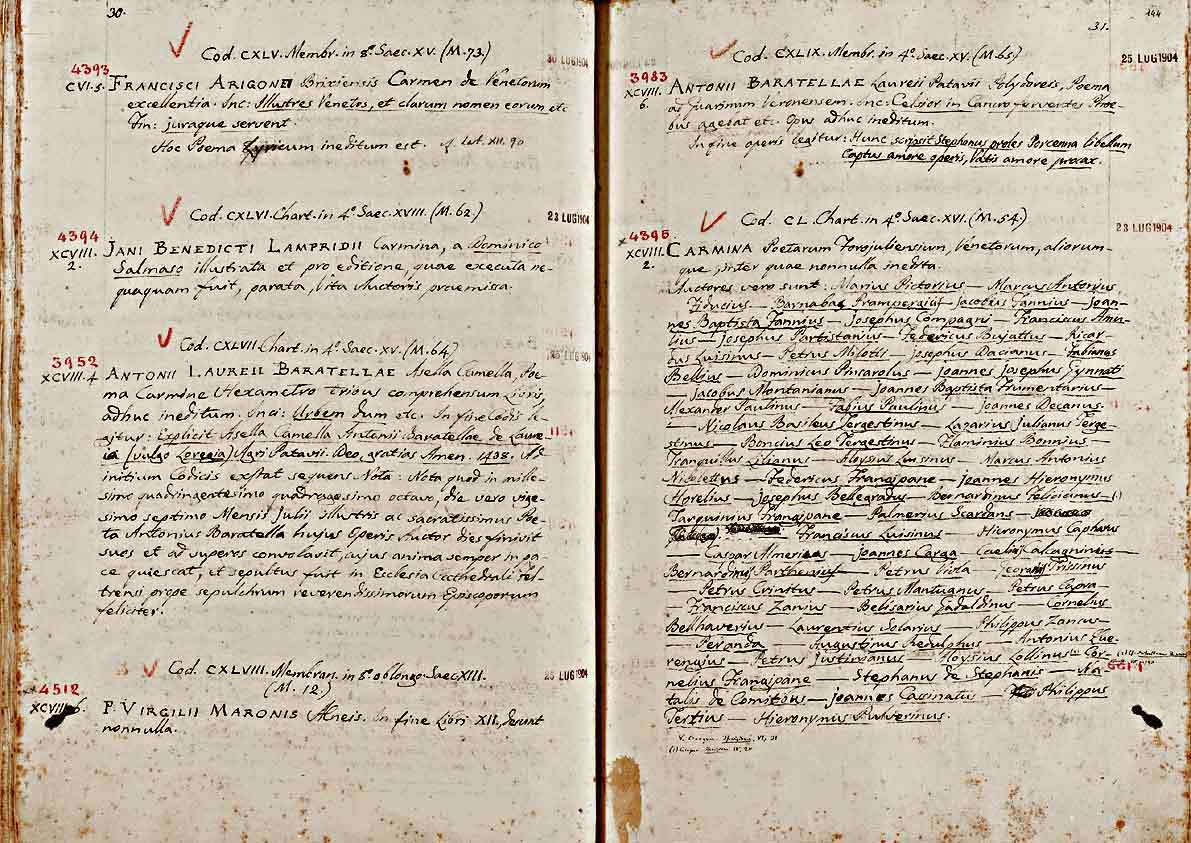 30.
Cod. CXLV. Membr. in 8.º Saec. XV. (M. 73.)
30 LUG 1904
4393
CVI. 5.
FRANCISCI ARIGONEI Brixiensis Carmen de Venetorum
excellentia. Inc: Illustres Venetos, et clarum nomen eorum etc
Fin: juraque servent.
Hoc Poema Lyricum ineditum est. cf. Lat. XII. 90
Cod. CXLVI. Chart. in 4.º Saec. XVIII. (M. 62.)
23 LUG 1904
4394
XCVIII.
2.
JANI BENEDICTI LAMPRIDII Carmina, a Dominico
Salmaso illustrata et pro editione, quae executa ne-
quaquam fuit, parata, Vita Auctoris praemissa.
Cod. CXLVII. Chart. in 4.º Saec. XV. (M. 64)
LUG 904
3952
XCVIII. 4
ANTONII LAUREII BARATELLAE Asella Camella, Poe-
ma Carmine Hexametro tribus comprehensum Libris,
adhuc ineditum. Inci: Urbem dum etc. In fine Codis le-
gitur: Explicit Asella Camella Antonii Baratellae de Laure-
ia (vulgo Loreggia) Agri Patavii. Deo, gratias Amen. 1438. Ad
initium Codicis exstat sequens Nota: Nota quod in mille-
simo quadringentesimo quadragesimo octavo, die vero vige-
simo septimo Mensis Julii illustris ac sacratissimus Poe-
ta Antonius Baratella hujus Operis Auctor dies finivit
suos et ad superos convolavit, cujus anima semper in pa-
ce quiescat, et sepultus fuit in Ecclesia Cathedrali Fel-
trensi prope sepulchrum reverendissimorum Episcoporum
feliciter.
Cod. CXLVIII. Membran. in 8.º oblongo Saec. XIII.
(M. 12.)
25 LUG 1904
4512
XCVIII
P. VIRGILII MARONIS Aeneis. In fine Libri XII, desunt
nonnulla.
31.
144
Cod. CXLIX. Membr. in 4.º Saec. XV. (M. 65.)
25 LUG 1904
3983
XCVIII.
6.
ANTONII BARATELLAE Laureii Patavii Polydoreis, Poema
ad Guarinum Veronensem. Inc: Celsior in Cancro ferventes Phoe-
bus agebat etc. Opus adhuc ineditum.
In fine operis legitur: Hunc scripsit Stephanus proles Porcenna libellum
Captus amore operis, Vatis amore procax.
Cod. CL. Chart. in 4.º Saec. XVI. (M. 54.)
23 LUG 1904
4395
XCVIII.
2.
CARMINA Poetarum Forojuliensium, Venetorum, aliorum-
que, inter quae nonnulla inedita.
Auctores vero sunt: Marius Pictorius — Marcus Antonius
Fiducius — Barnabas Prampergius — Jacobus Fannius — Joan-
nes Baptista Fannius — Josephus Compagni — Franciscus Ama-
lius — Josephus Partistanius — Federicus Bujattus — Ricar-
dus Luisinus — Petrus — Josephus Dacianus — Fabianus
Bellius — Dominicus Pissarolus — Joannes Josephus Zynnati
— Jacobus Montanianus — Joannes Baptista Frumentarius —
Alexander Paulinus — Fabius Paulinus — Joannes Decanus.
— Nicolaus Basileus Tergestinus — Lazarius Julianus Terge-
stinus — Boncius Leo Tergestinus — Flaminius Bonnius —
Tranquillus Lilianus — Aloysius Luisinus — Marcus Antonius
Nicolettus — Federicus Frangipane — Joannes Hieronymus
Horelius — Josephus Bellegradus — Bernardinus Felicianus — (1)
Tarquinius Frangipane — Palmerius Scardans —
Franciscus Luisinus — Hieronymus Caphorus
— Caspar Almericus — Joannes Carga — Caelius Calcagninus —
Bernardinus Parthenius — Petrus Viola — Georgius Trissinus
— Petrus Crinitus — Petrus Mantuanus — Petrus Capra —
— Franciscus Zanius — Belisarius Gadaldinus — Cornelius
Bellhaverius — Laurentius Solarius — Philippus Zancus —
— Peranda — Augustinus Redulphus — Antonius Que-
rengius — Petrus Justinianus — Aloysius Lollinus — Cor-
nelius Frangipane — Stephanus de Stephanis — Na-
talis de Comitibus — Joannes Casinatus — Philippus
Tertius — Hieronymus Pulverinus.